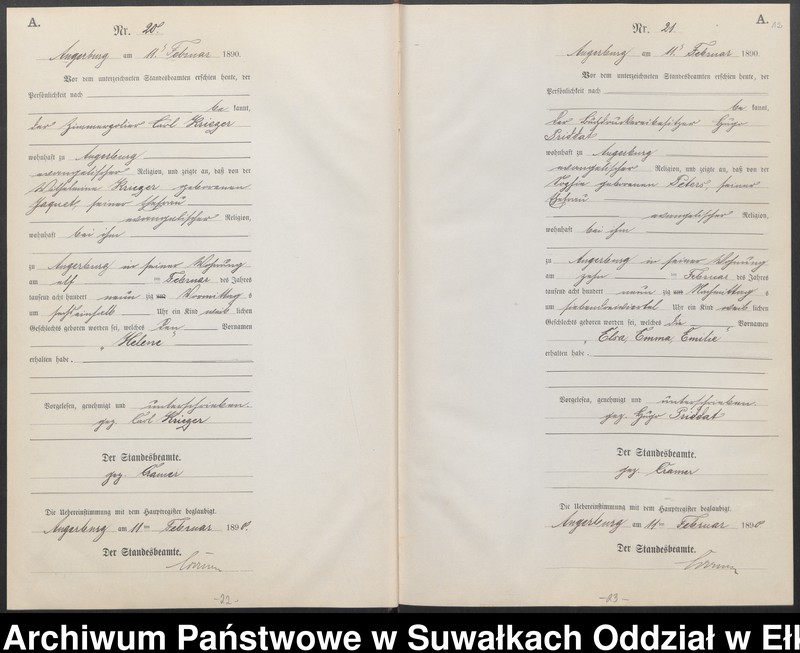 A.
Nr. 20.
Angerburg am 11. Februar 1890.
Vor dem unterzeichneten Standesbeamten erschien heute, der
Persönlichkeit nach
be kannt,
der Zimmerpolier Carl Krieger
wohnhaft zu Angerburg
evangelischer Religion, und zeigte an, daß von der
Wilhelmine Krieger geborenen
Jaquet, seiner Ehefrau
evangelischer Religion,
wohnhaft bei ihm
zu Angerburg in seiner Wohnung
am elf ten Februar des Jahres
tausend acht hundert neun zig Vormittag s
um sechseinhalb Uhr ein Kind weib lichen
Geschlechts geboren worden sei, welches den Vornamen
„Helene"
erhalten habe.
Vorgelesen, genehmigt und unterschrieben.
gez. Carl Krieger
Der Standesbeamte.
gez. Cramer
Die Uebereinstimmung mit dem Hauptregister beglaubigt.
Angerburg am 11ten Februar 1890.
Der Standesbeamte.
Cramer
-22-
A.
Nr. 21
Angerburg am 11. Februar 1890.
Vor dem unterzeichneten Standesbeamten erschien heute, der
Persönlichkeit nach
be kannt,
der Buchdruckereibesitzer Hugo
Priddat
wohnhaft zu Angerburg
evangelischer Religion, und zeigte an, daß von der
Sophie geborenen Peters, seiner
Ehefrau
evangelischer Religion,
wohnhaft bei ihm
zu Angerburg in seiner Wohnung
am zehn ten Februar des Jahres
tausend acht hundert neun zig Nachmittag s
um Uhr ein Kind weib lichen
Geschlechts geboren worden sei, welches die Vornamen
„Elsa, Emma, Emilie"
erhalten habe.
Vorgelesen, genehmigt und unterschrieben.
gez. Hugo Priddat
Der Standesbeamte.
gez. Cramer
Die Uebereinstimmung mit dem Hauptregister beglaubigt.
Angerburg am 11ten Februar 1890.
Der Standesbeamte.
Cramer
-23-
Archiwum Państwowe w Suwałkach Oddział w Ełk